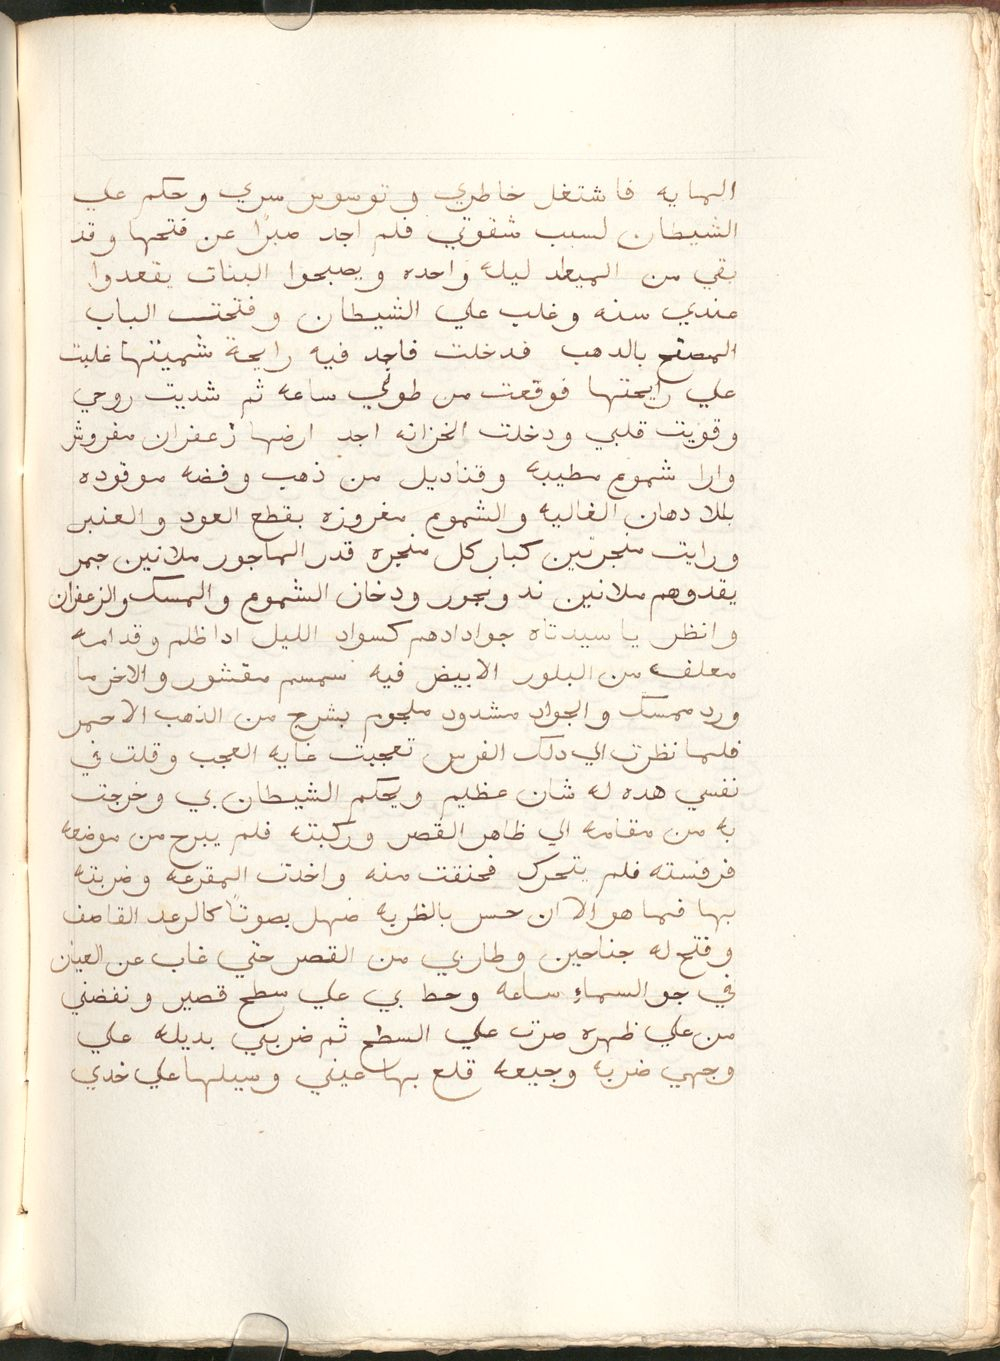 المايه فاشتغل خاطري وتوسوس سري وحكم علي
الشيطان لسبب شقوتي فلم اجد صبرًا عن فتحها وقد
بقي من الميعاد ليله واحده ويصبحوا البنات يقعدوا
عندي سنه وغلب علي الشيطان وفتحت الباب
المصفح بالدهب فدخلت فاجد فيه رايحة شميتها غلبت
علي رايحتها فوقعت من طولي ساعه ثم شديت روحي
وقويت قلبي ودخلت الخزانه اجد ارضها زعفران مفروش
وارا شموع مطيبه وقناديل من ذهب وفضه موقوده
بالادهان الغاليه والشموع مغروزه بقطع العود والعنبر
ورايت منجرتين كبار كل منجره قدر الماجور ملانين جمر
يقدوهم ملانين ند وبخور ودخان الشموع والمسك والزعفران
وانظر يا سيدتاه جوادادهم كسواد الليل اداظلم وقدامه
معلف من البلور الابيض فيه سمسم مقشور والاخر ما
ورد ممسك والجواد مشدود ملجوم بشرج من الذهب الاحمر
فلما نظرت الي دلك الفرس تعجبت غايه العجب وقلت في
نفسي هده له شان عظيم ويحكم الشيطان بي وخرجت
به من مقامه الي ظاهر القصر وركبته فلم يبرح من موضعه
فرفسته فلم يتحرك فحنقت منه واخدت المقرعه وضربته
بها فما هو الا ان حس بالظربه ضهل بصوتًا كالرعد القاصف
وفتح له جناحين وطار بي من القصر حتي غاب عن العيان
في جو السماءِ ساعه وحط بي علي سطح قصير ونفضني
من علي ظهره صرت علي السطح ثم ضربني بديله علي
وجهي ضربه وجيعه قلع بها عيني وسيلها علي خدي